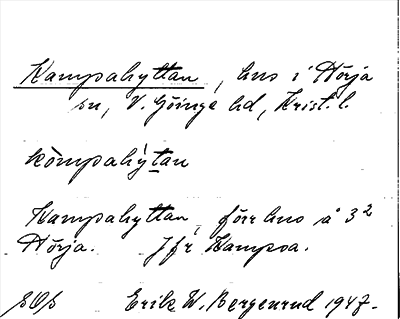 Kampahyttan, hus i Hörja
sn, V. Göinge hd, Krist. l.
kòmpahỳtan
Kampahyttan, förr hus å 3²
Hörja. Jfr Kampoa.
Erik W. Bergenrud 1947.